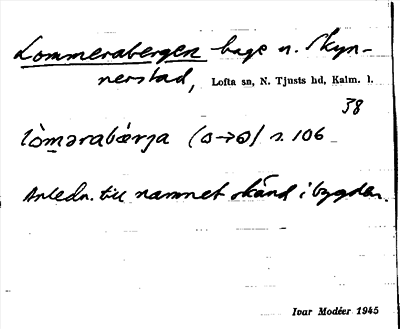 Lommerabergen hage n. Skyn-
nerstad, Lofta sn, N. Tjusts hd, Kalm. l.
38
lòmərabærja (ɔ→ɔ) s. 106
Anledn. till namnet okänd i bygden.
Ivar Modéer 1945